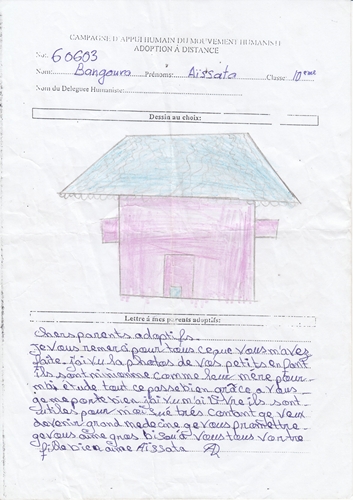 CAMPAGNE D'APPUI HUMAIN DU MOUVEMENT HUMANISTE
ADOPTION À DISTANCE
No: 60603
Nom: Bangoura Prénoms: Aïssata Classe 10eme
Nom du Délégué Humaniste:
Dessin au choix:
Lettre à mes parents adoptifs:
chers parents adoptifs.
je vous remerç pour tous ce que vous m'avez
faite. j'ai vu la photos de vos petits enfant
ils sont mimonne comme leur mère pour
moi étude tout ce passe bien grâce a vous
ge me porte bien. j'ai vu mai lettre ils sont
utiles pour moi sue très contant ge veux
devenir grand medecine ge vous promettre
ge vous aime gros bisou à vous tous vortre
fide bien aime Aïssata